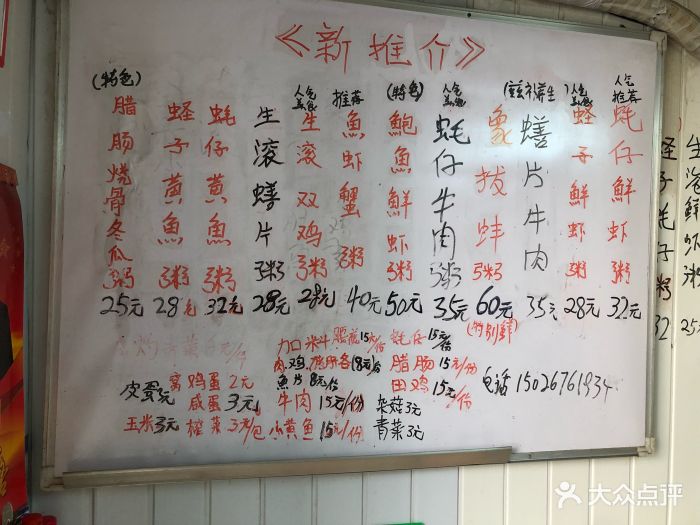 《新推介》
(特色)
腊肠烧骨冬瓜粥
25元
蛏子黄魚粥
28元
蚝仔黄魚粥
32元
生滚鳝片粥
28元
人气美食
生滚双鸡粥
28元
推荐
魚虾蟹粥
40元
(特色)
鲍魚鮮虾粥
50元
人气美食
蚝仔牛肉粥
35元
象拔蚌粥
60元
(特别鮮)
鳝片牛肉
35元
人气美食
蛏子鮮虾粥
28元
人气推荐
蚝仔鮮虾粥
32元
蛏子蚝仔粥
32
生海鲜虾粥
25
15元/份
蚝仔 15元/份
肉鸡
18元/份
腊肠 15元/份
魚片 8元/份
田鸡 15元/份
皮蛋3元
窝鸡蛋 2元
咸蛋 3元
牛肉 15元/份
杂菇3元
玉米3元
榨菜 3元/包
小黄魚 15元/份
青菜3元
电话 15026761934
大众点评